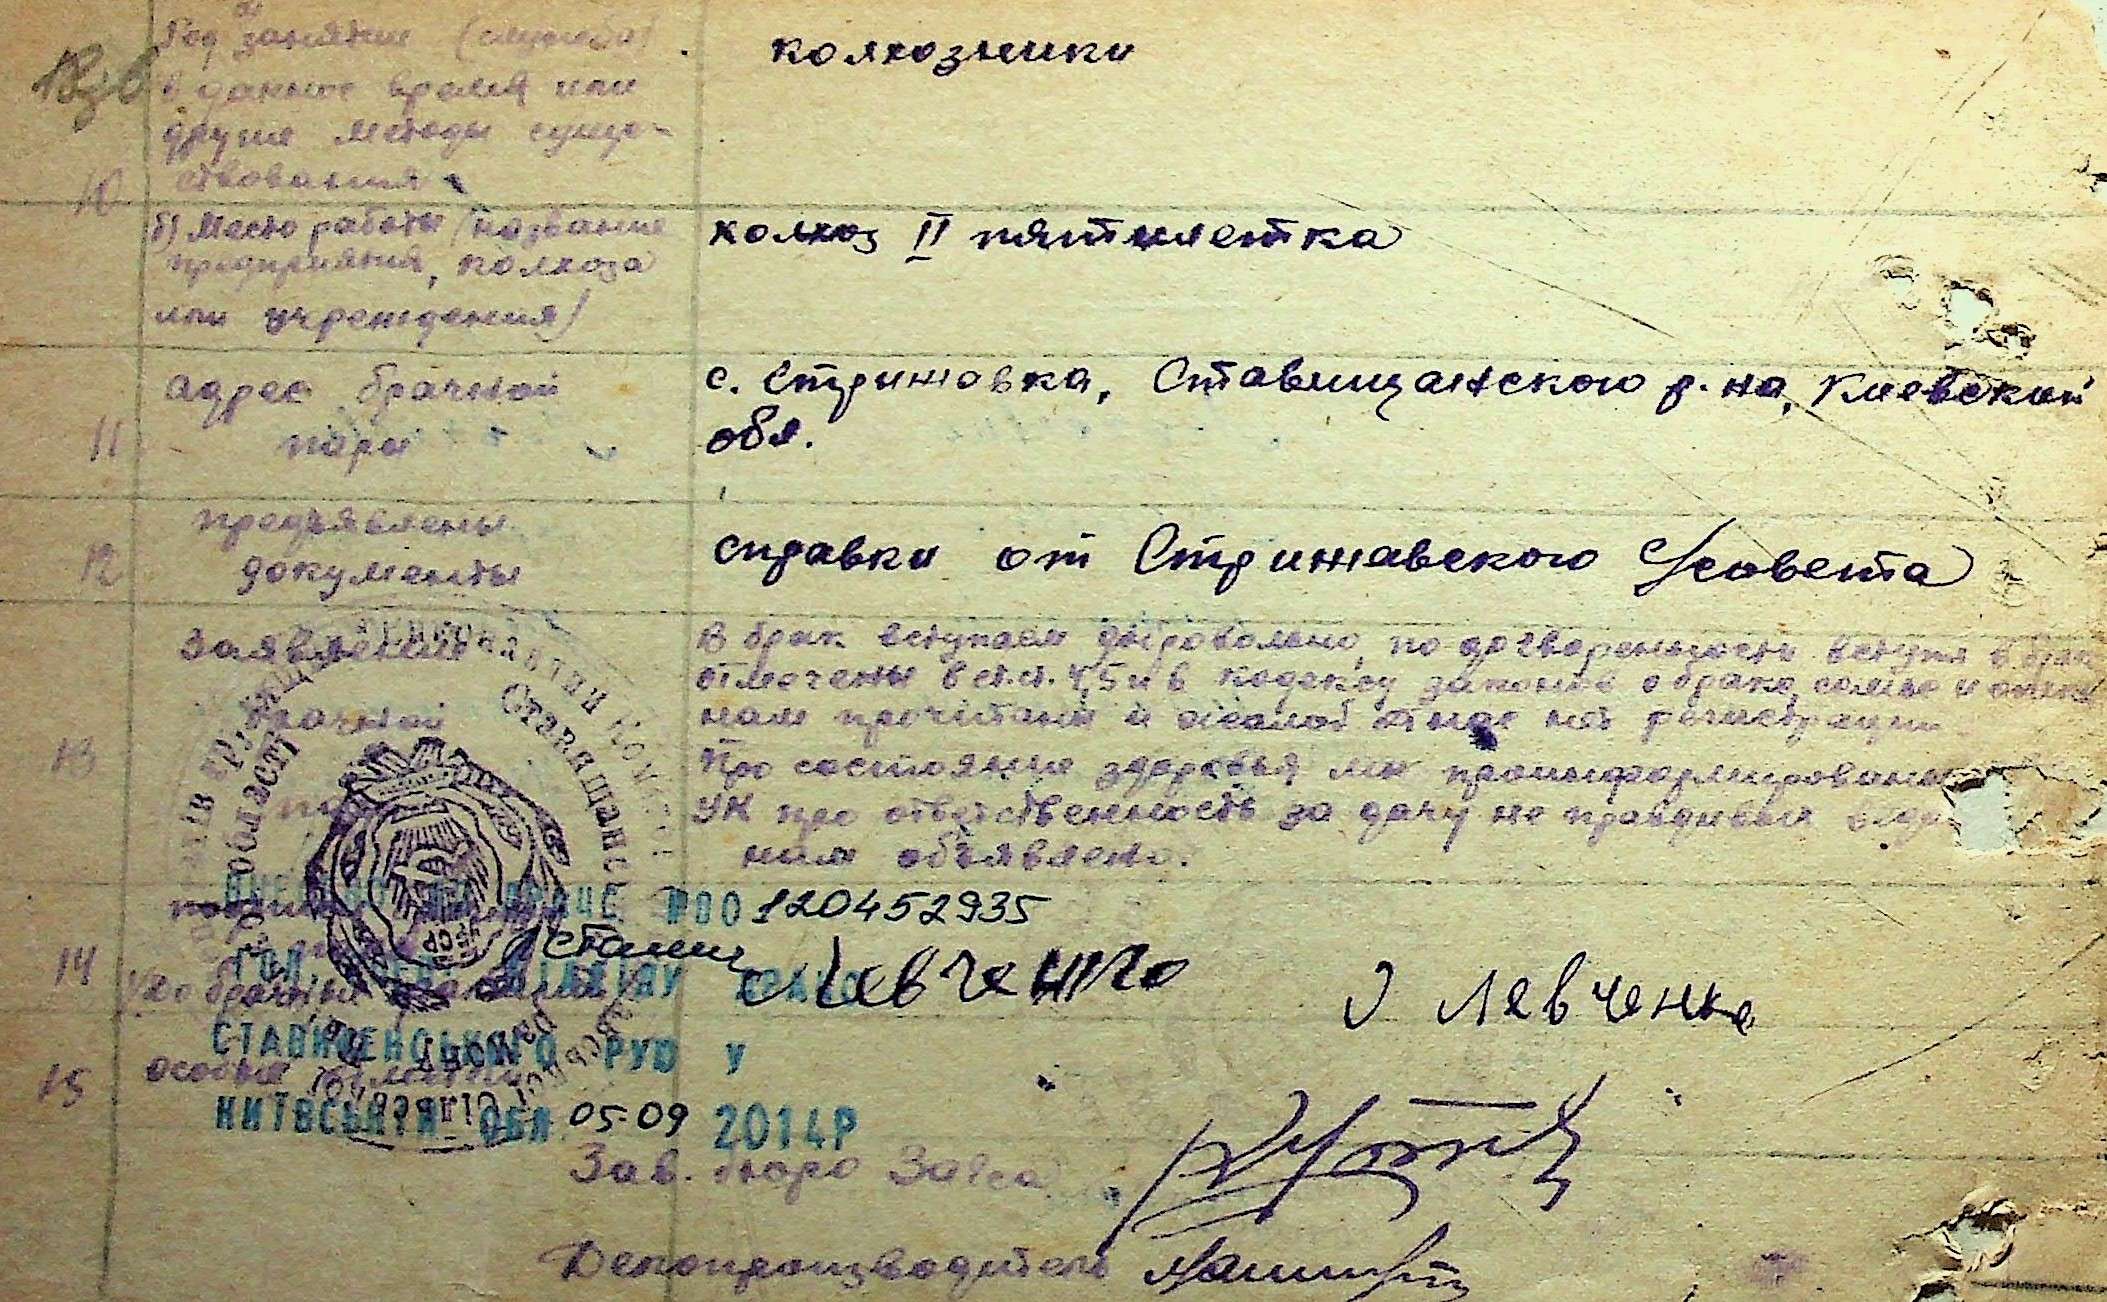 Род занятие (служба)
в данное время или
другие методы суще-
ствования
колхозники
10
б) Место работы (название
предприятия, колхоза
или учреждения)
колхоз II пятилетка
11
адрес брачной
пары
с. Стрижавка, Ставищанского р-на, Киевской
обл.
12
предъявлены
документы
справки от Стрижавского с/совета
13
Заявление
брачной
В брак вступаем добровольно, по договоренности вступл в брак
отмечены в ст.ст. 4,5 и в кодексу законов о браке, семье и опеке
нам прочитаны и нас нет регистрации
Про состояние здоровья мы проинформированы
УК про ответственность за дачу не правдивых
нам объявлено.
Ставищанс
області
УРСР
№00120452935
14
Левченко
Левченко
СТАВИЩЕНСЬКОГО РУЮ У
15
особые
КИЇВСЬКІЙ ОБЛ 05-09 2014Р
Зав. бюро Загса
Делопроизводитель